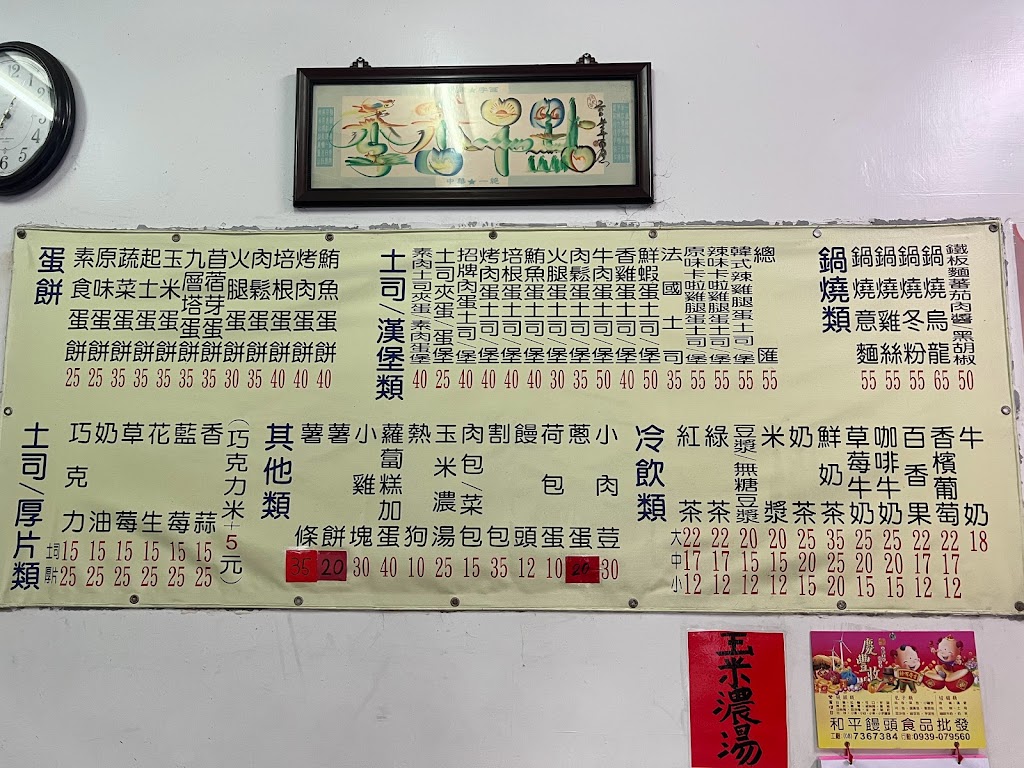 季香早點
蛋餅
素食蛋餅 25
原味蛋餅 25
蔬菜蛋餅 35
起士蛋餅 35
玉米蛋餅 35
九層塔蛋餅 35
苜蓿芽蛋餅 35
火腿蛋餅 30
肉鬆蛋餅 35
培根蛋餅 40
烤肉蛋餅 40
鮪魚蛋餅 40
土司/漢堡類
素肉土司夾蛋/素肉蛋堡 40
土司夾蛋/蛋堡 25
招牌肉蛋土司/堡 40
烤肉蛋土司/堡 40
培根蛋土司/堡 40
鮪魚蛋土司/堡 40
火腿蛋土司/堡 30
肉鬆蛋土司/堡 35
牛肉蛋土司/堡 50
香雞蛋土司/堡 40
鮮蝦蛋土司/堡 50
法國土司 35
原味卡啦雞腿蛋土司堡 55
辣味卡啦雞腿蛋土司堡 55
韓式辣雞腿蛋土司堡 55
總匯 55
鍋燒類
鍋燒意麵 55
鍋燒雞絲 55
鍋燒冬粉 55
鍋燒烏龍 65
鐵板麵蕃茄肉醬 黑胡椒 50
土司/厚片類
土司 厚片
巧克力 15 25
奶油 15 25
草莓 15 25
花生 15 25
藍莓 15 25
香蒜 15 25
(巧克力米+5元)
其他類
薯條 35
薯餅 20
小雞塊 30
蘿蔔糕加蛋 40
熱狗 10
玉米濃湯 25
肉包/菜包 15
割包 35
饅頭 12
荷包蛋 10
蔥蛋
小肉荳 30
冷飲類
大 中 小
紅茶 22 17 12
綠茶 22 17 12
豆漿/無糖豆漿 20 15 12
米漿 20 15 12
奶茶 25 20 15
鮮奶茶 35 25 20
草莓牛奶 25 20 15
咖啡牛奶 25 20 15
百香果 22 17 12
香檳葡萄 22 17 12
牛奶 18
玉米濃湯
慶豐收
和平饅頭食品批發
工廠:(08)7367384 行動:0939-079560